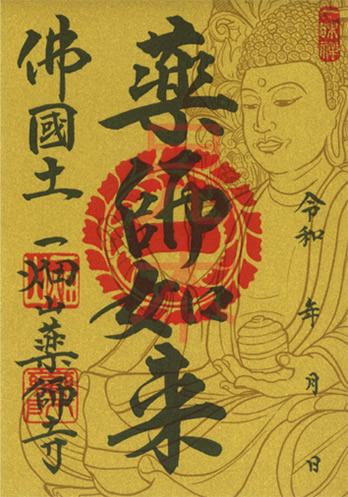 令和　年　月　日
薬師如来
佛國土
一畑山薬師寺